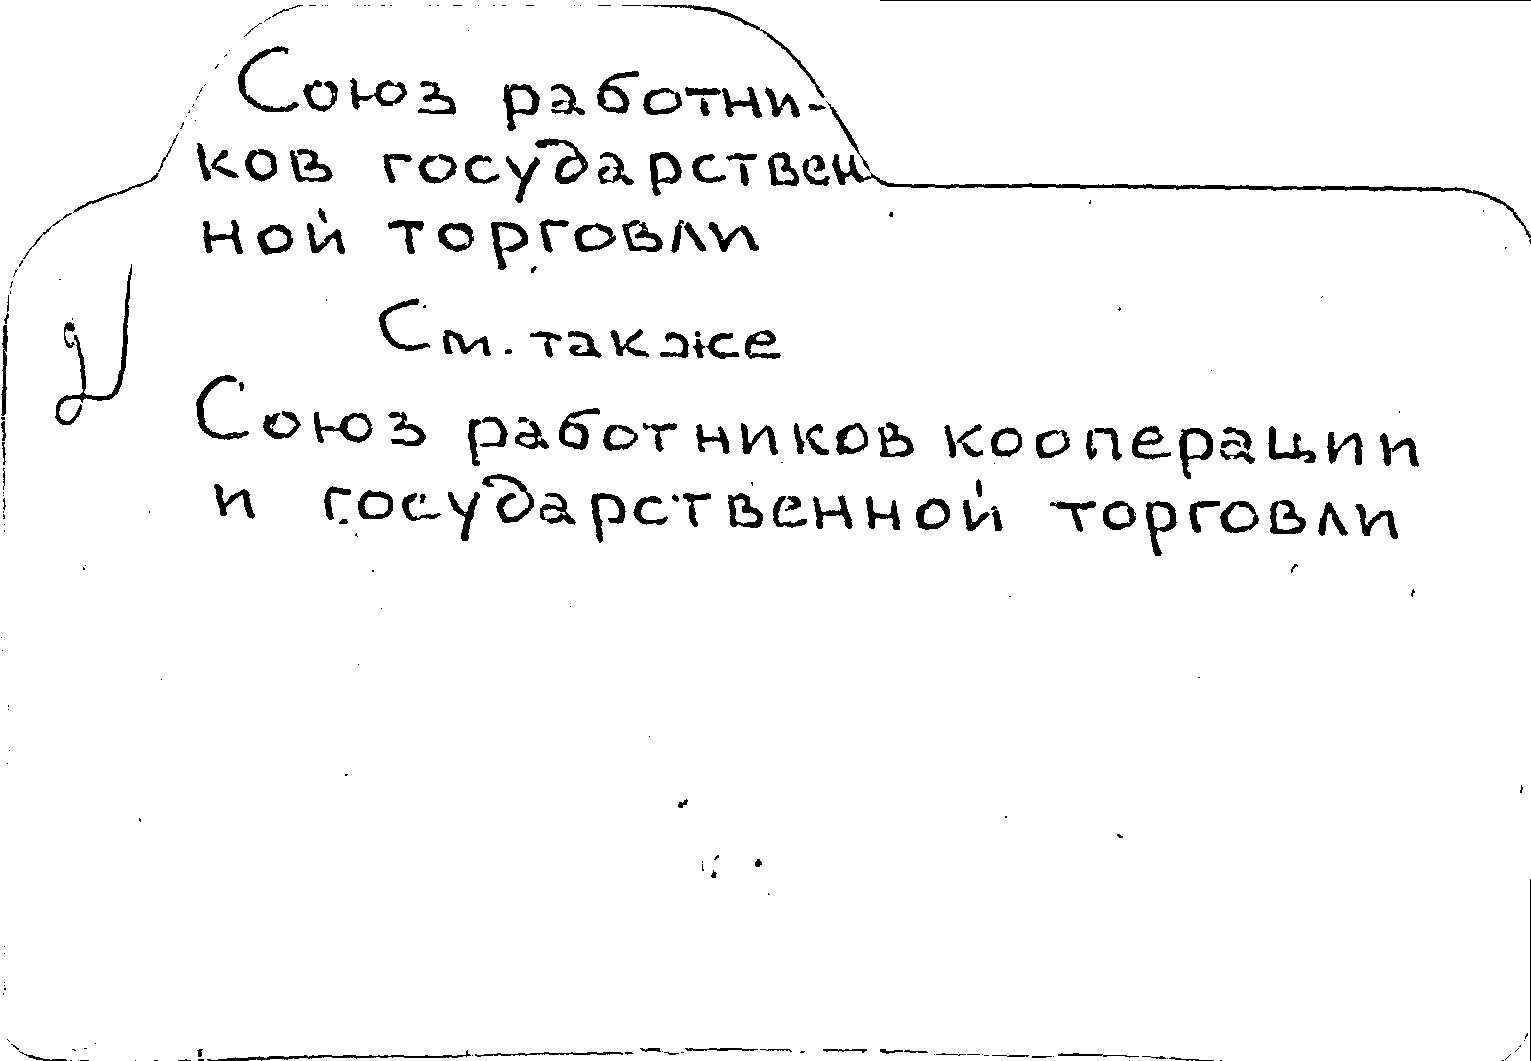 Союз работни-
ков государствен
ной торговли
См. также
Союз работников кооперации
и государственной торговли